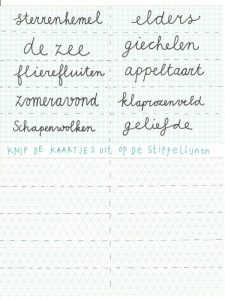 sterrenhemel
elders
de zee
giechelen
flierefluiten
appeltaart
zomeravond
klaprozenveld
Schapenwolken
geliefde
KNIP DE KAARTJES UIT OP DE STIPPELLIJNEN